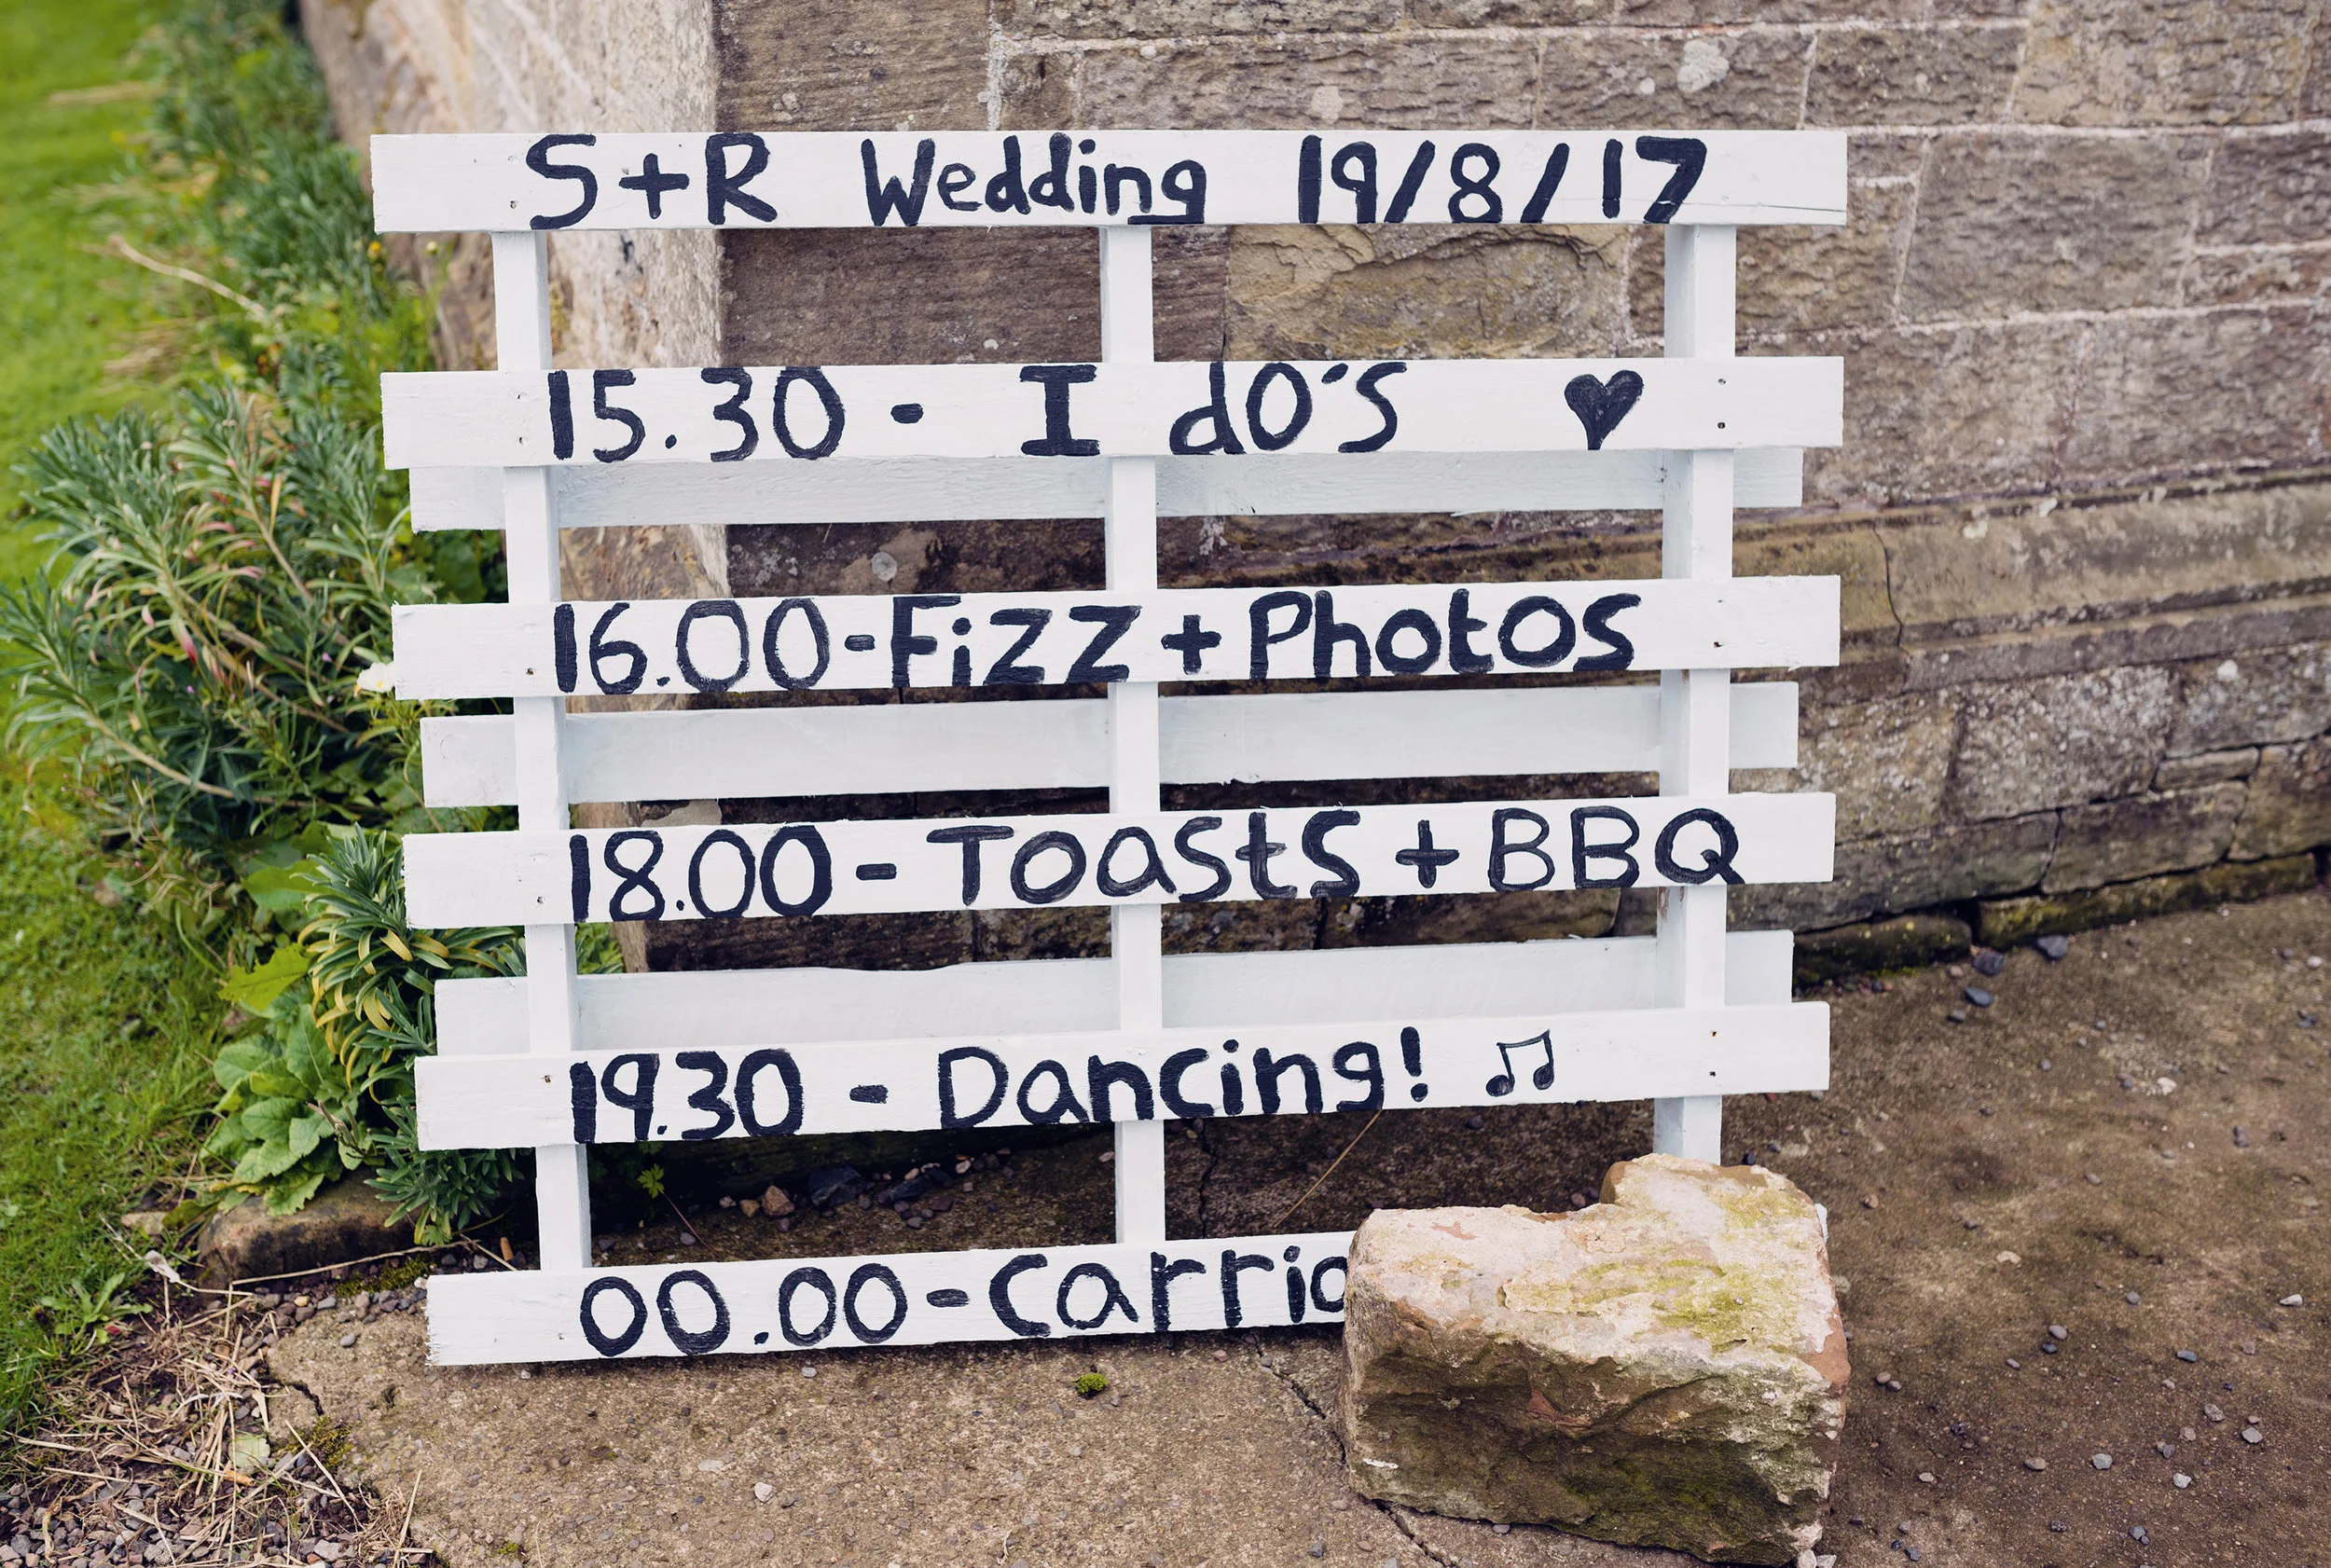 S+R Wedding 19/8/17
15.30 - I do's ♥
16.00 - Fizz + Photos
18.00 - Toasts + BBQ
19.30 - Dancing! ♫
00.00 -